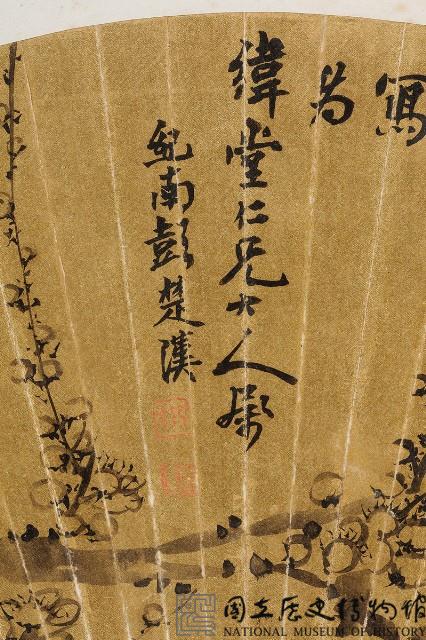 寫
為
緯堂仁兄大人屬
南彭楚漢
國立歷史博物館
NATIONAL MUSEUM OF HISTORY